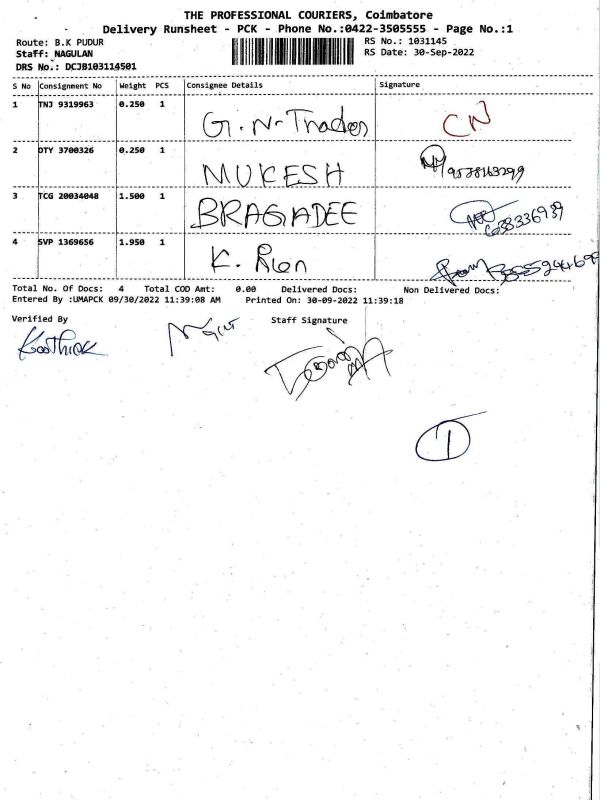 THE PROFESSIONAL COURIERS, Coimbatore
Delivery Runsheet - PCK - Phone No.:0422-3505555 - Page No.:1
Route: B.K PUDUR RS No.: 1031145
Staff: NAGULAN RS Date: 30-Sep-2022
DRS No.: DCJB103114501
S No Consignment No Weight PCS Consignee Details Signature
1 TNJ 9319963 0.250 1 G.N-Trades CN
2 DTY 3700326 0.250 1 MUKESH
3 TCG 20034048 1.500 1 BRAGADEE
4 SVP 1369656 1.950 1 K.
Total No. Of Docs: 4 Total COD Amt: 0.00 Delivered Docs: Non Delivered Docs:
Entered By :UMAPCK 09/30/2022 11:39:08 AM Printed On: 30-09-2022 11:39:18
Verified By Staff Signature
1